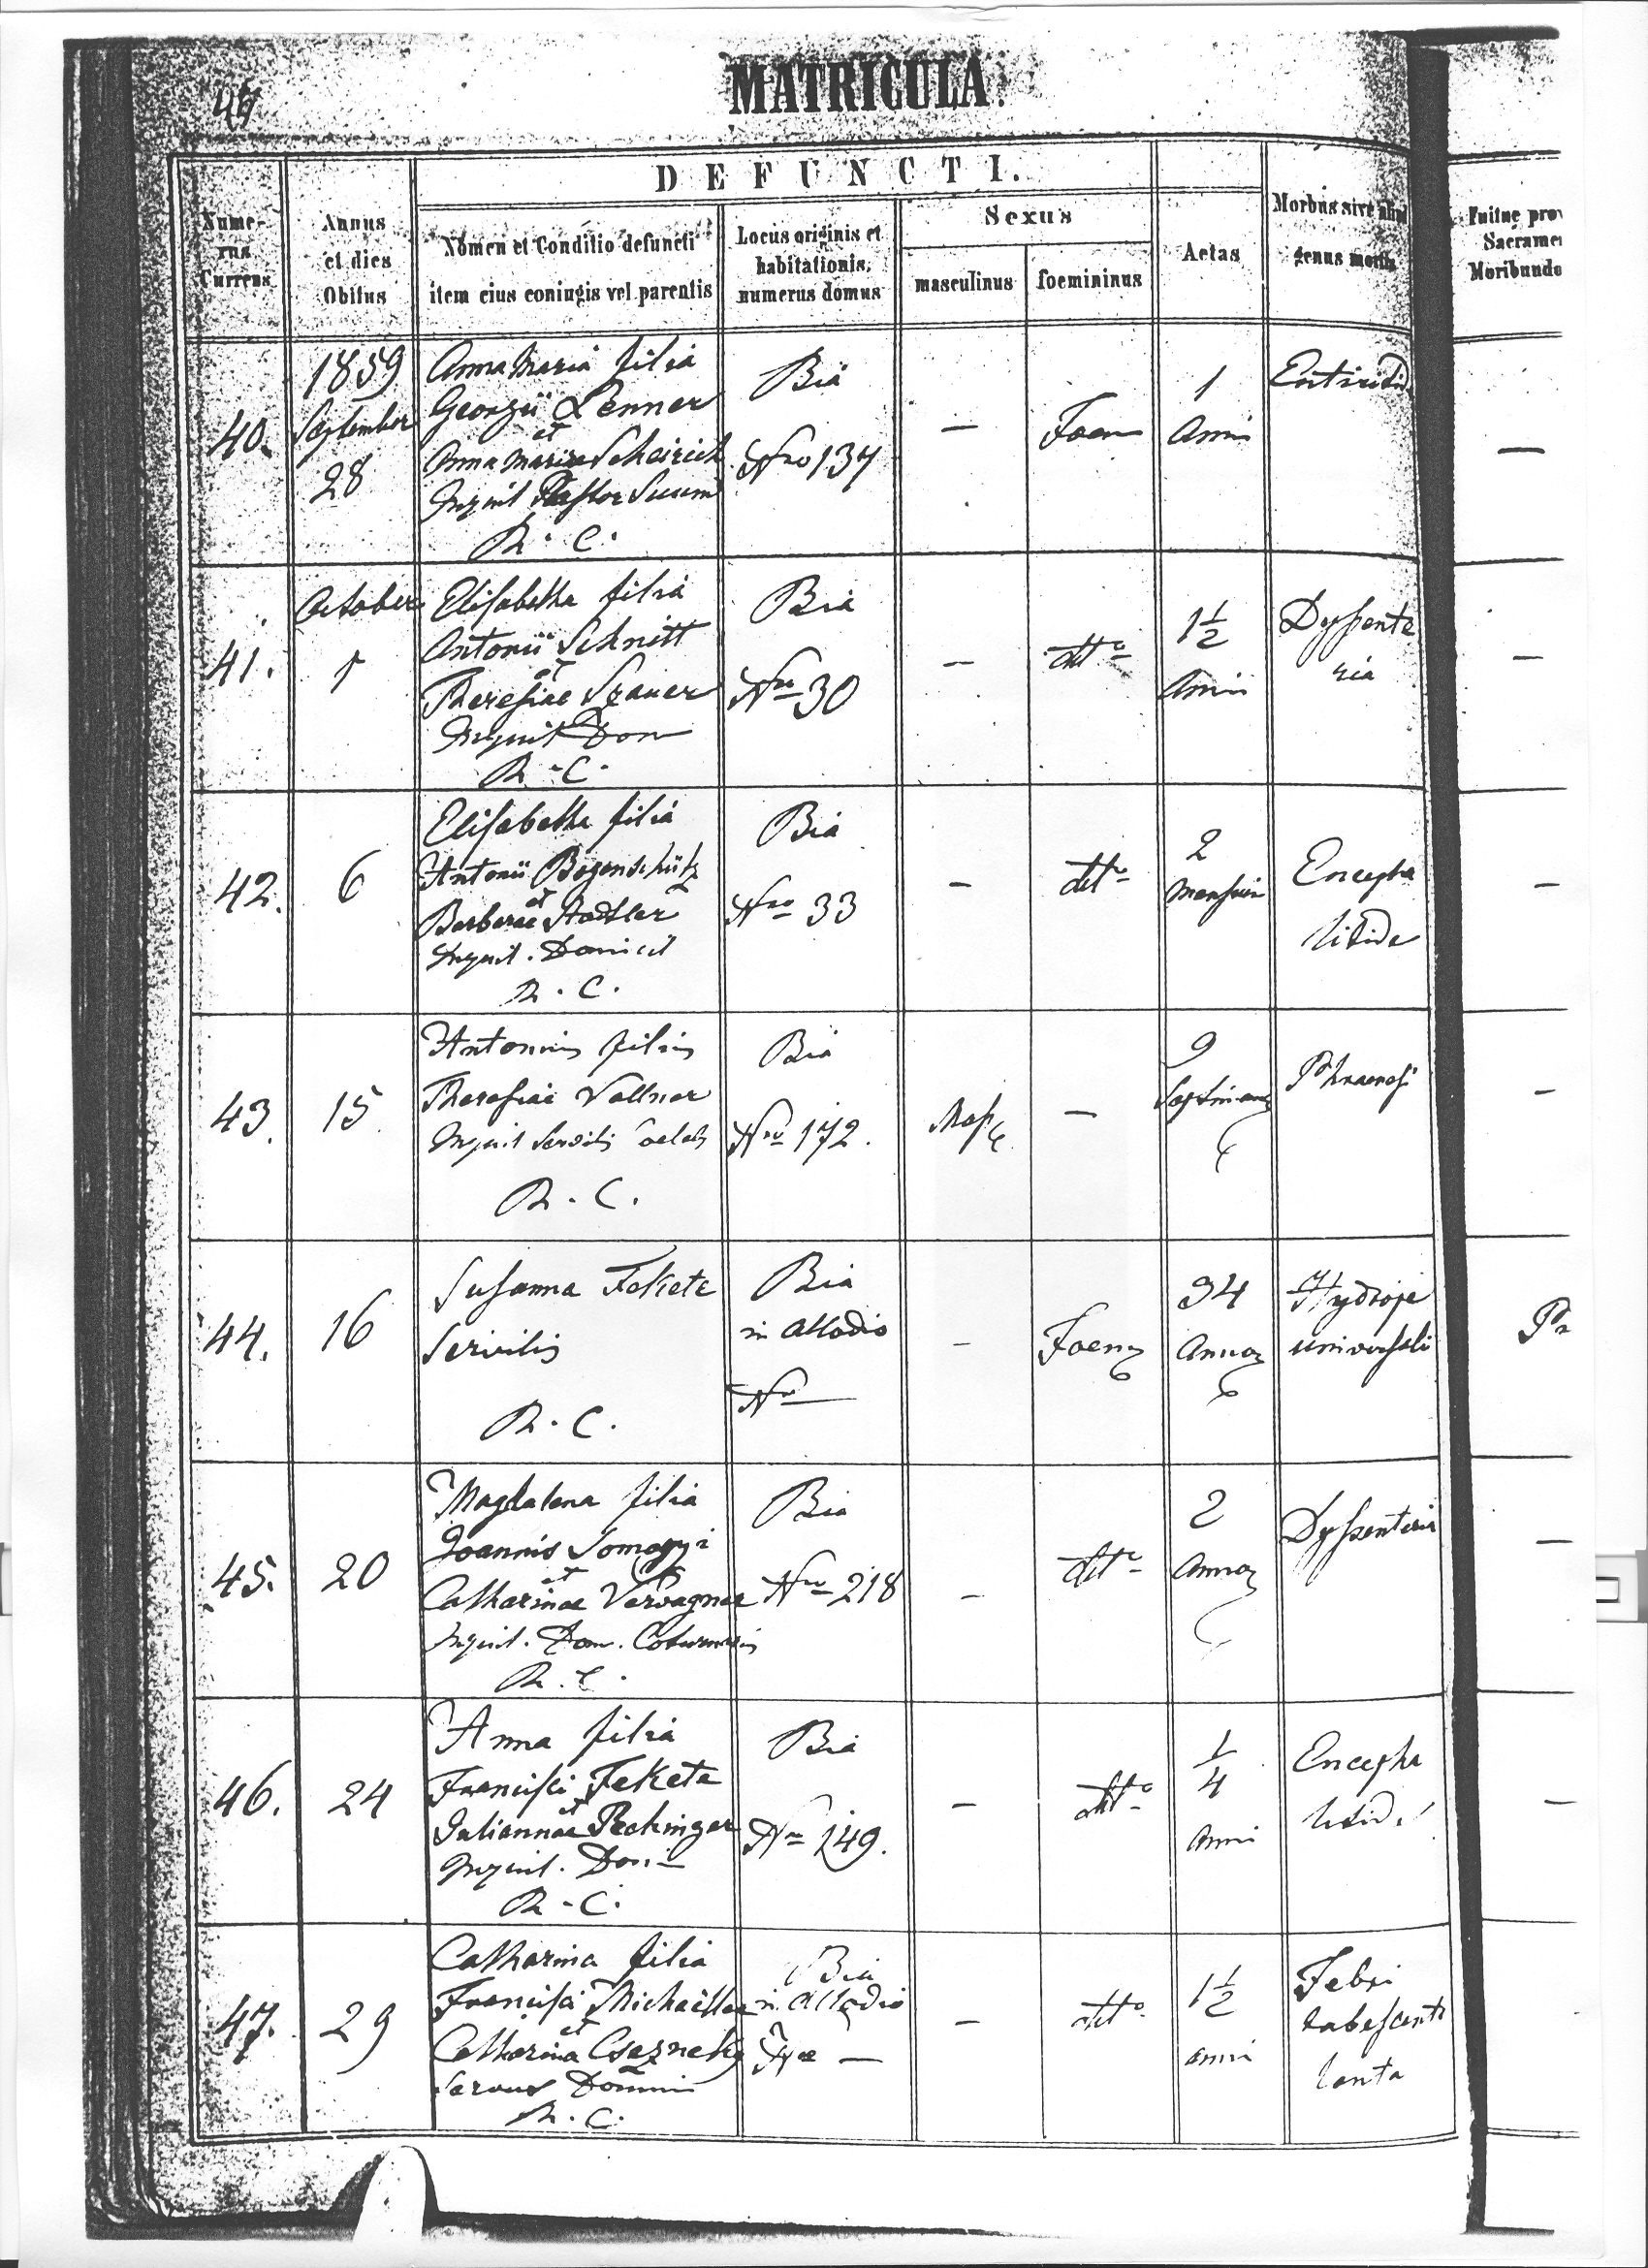 MATRICULA.
DEFUNCTI.
Nume-
rus
Currens
Annus
et dies
Obitus
Nomen et Conditio defuncti
item eius coniugis vel parentis
Locus originis et
habitationis,
numerus domus
Sexus
masculinus
foemininus
Aetas
Morbus sive aliud
genus mortis
Fuitne pro
Sacrame
Moribundo
40.
1859
September
28
Anna Maria filia
Georgii Lenner
et
Anna Mariae Scheirich
Inquil Pastor Suum
R. C.
Bia
Nro 137
—
Foem
1
Anni
—
41.
October
1
Elisabetha filia
Antonii Schnitt
et
Theresiae Szauer
Inquil Dom
R. C.
Bia
Nro 30
—
detto
1½
Anni
Dyssente
ria
—
42.
6
Elisabetha filia
Antonii Bogenschütz
et
Barbarae Stadtler
Inquil. Domicil
R. C.
Bia
Nro 33
—
detto
2
Mensium
Encepha
litide
—
43.
15
Antonius filius
Theresiae Vollner
Inquil Servilis Caelebs
R. C.
Bia
Nro 172.
Masc
—
9
Septiman
Phraenesi
—
44.
16
Susanna Fekete
Servilis
R. C.
Bia
in Allodio
Nro —
—
Foem
34
Annor
Hydrope
universali
Pr
45.
20
Magdalena filia
Joannis Somogyi
et
Catharinae Varvagner
Inquil. Dom. Coturnicis
R. C.
Bia
Nro 218
—
detto
2
Annor
Dyssenteria
—
46.
24
Anna filia
Francisci Fekete
et
Juliannae Pechinger
Inquil. Dom
R. C.
Bia
Nro 149.
—
detto
¼
Anni
Encepha
litid.
—
47.
29
Catharina filia
Francisci Michaeller
et
Catharina Csezneky
Servus Domini
R. C.
Bia
in Allodio
Nro —
—
detto
1½
Anni
Febri
tabescenti
lenta